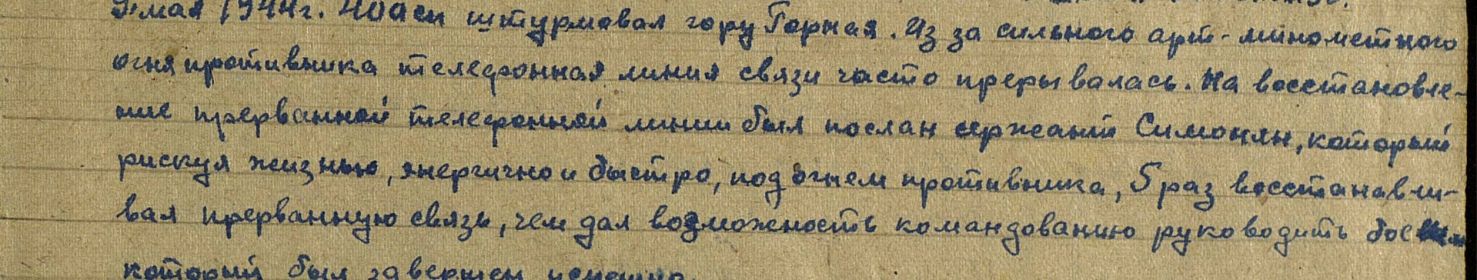 9 мая 1944г. 40асп штурмовал гору Горная. Из за сильного арт-минометного
огня противника телефонная линия связи часто прерывалась. На восстановле-
ние прерванной телефонной линии был послан сержант Симонян, который
рискуя жизнью, энергично и быстро, под огнем противника, 5 раз восстанавли-
вал прерванную связь, чем дал возможность командованию руководить боем
который был завершен успешно.